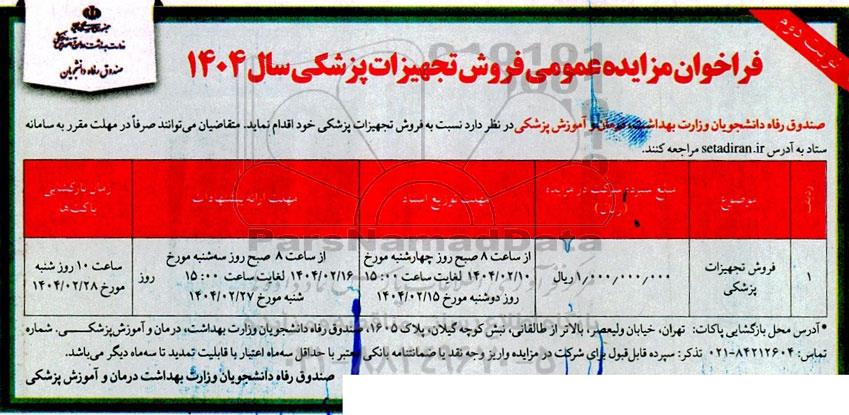 نوبت دوم
صندوق رفاه دانشجویان
فراخوان مزایده عمومی فروش تجهیزات پزشکی سال ۱۴۰۴
صندوق رفاه دانشجویان وزارت بهداشت، درمان و آموزش پزشکی در نظر دارد نسبت به فروش تجهیزات پزشکی خود اقدام نماید. متقاضیان می‌توانند صرفاً در مهلت مقرر به سامانه
ستاد به آدرس setadiran.ir مراجعه کنند.
ردیف
موضوع
مبلغ سپرده شرکت در مزایده
(ریال)
مهلت توزیع اسناد
مهلت ارائه پیشنهادات
زمان بازگشایی
پاکت‌ها
۱
فروش تجهیزات
پزشکی
۱,۰۰۰,۰۰۰,۰۰۰ ریال
از ساعت ۸ صبح روز چهارشنبه مورخ
۱۴۰۴/۰۲/۱۰ لغایت ساعت ۱۵:۰۰
روز دوشنبه مورخ ۱۴۰۴/۰۲/۱۵
از ساعت ۸ صبح روز سه‌شنبه مورخ
۱۴۰۴/۰۲/۱۶ لغایت ساعت ۱۵:۰۰ روز
شنبه مورخ ۱۴۰۴/۰۲/۲۷
ساعت ۱۰ روز شنبه
مورخ ۱۴۰۴/۰۲/۲۸
ParsNamadData
• آدرس محل بازگشایی پاکات: تهران، خیابان ولیعصر، بالاتر از طالقانی، نبش کوچه گیلان، پلاک ۱۶۰۵، صندوق رفاه دانشجویان وزارت بهداشت، درمان و آموزش پزشکی. شماره
تماس: ۸۴۲۱۲۶۰۴-۰۲۱ تذکر: سپرده قابل قبول برای شرکت در مزایده واریز وجه نقد یا ضمانتنامه بانکی معتبر با حداقل سه‌ماه اعتبار با قابلیت تمدید تا سه‌ماه دیگر می‌باشد.
صندوق رفاه دانشجویان وزارت بهداشت درمان و آموزش پزشکی